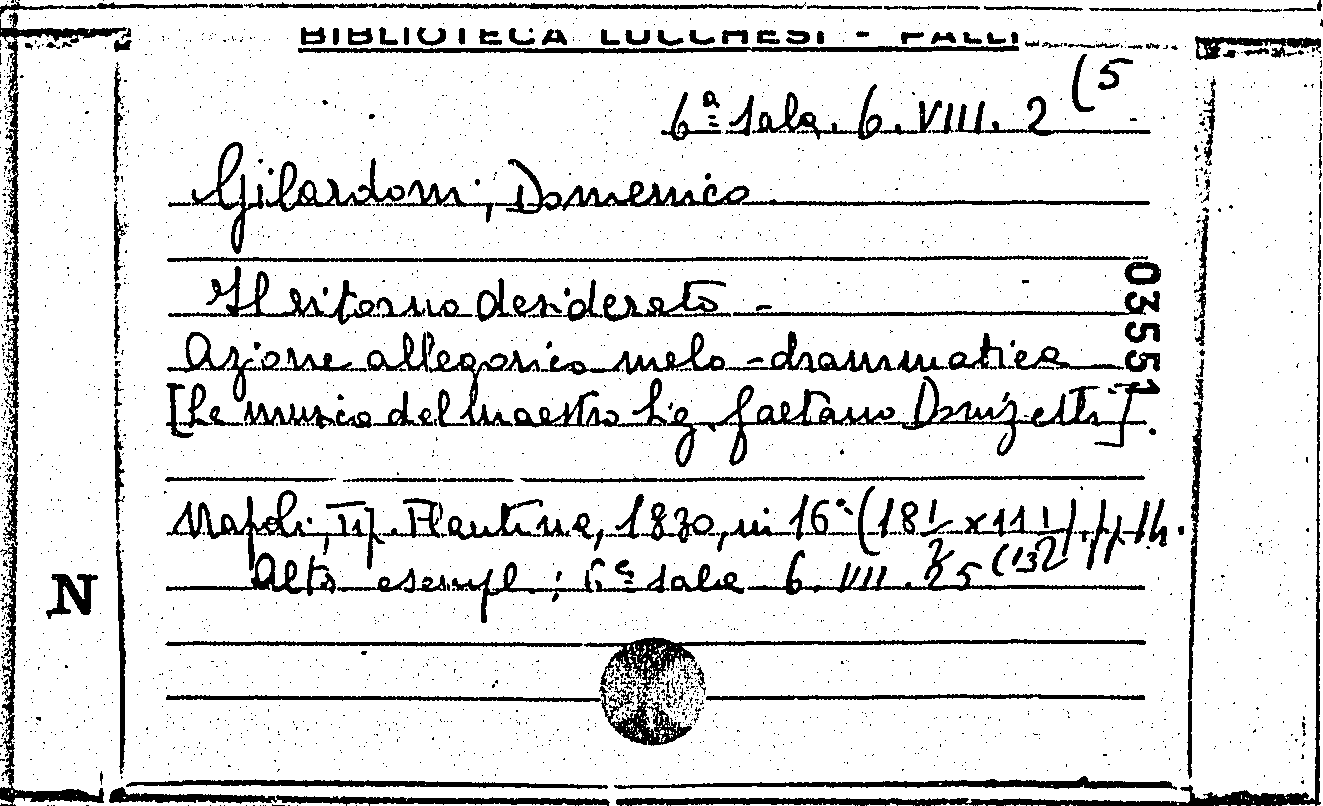 BIBLIOTECA LUCCHESI - PALLI
6ª sala. 6. VIII. 2 (5
Gilardoni, Domenico
Il ritorno desiderato -
Azione allegorica melo-drammatica
[La musica del Maestro Sig. Gaetano Donizetti].
Napoli, Tip. Flautina, 1830, in 16° (18½ x 11½), pp. 14.
Altro esempl.: 6ª sala 6. VIII. 25 (132
03551
N